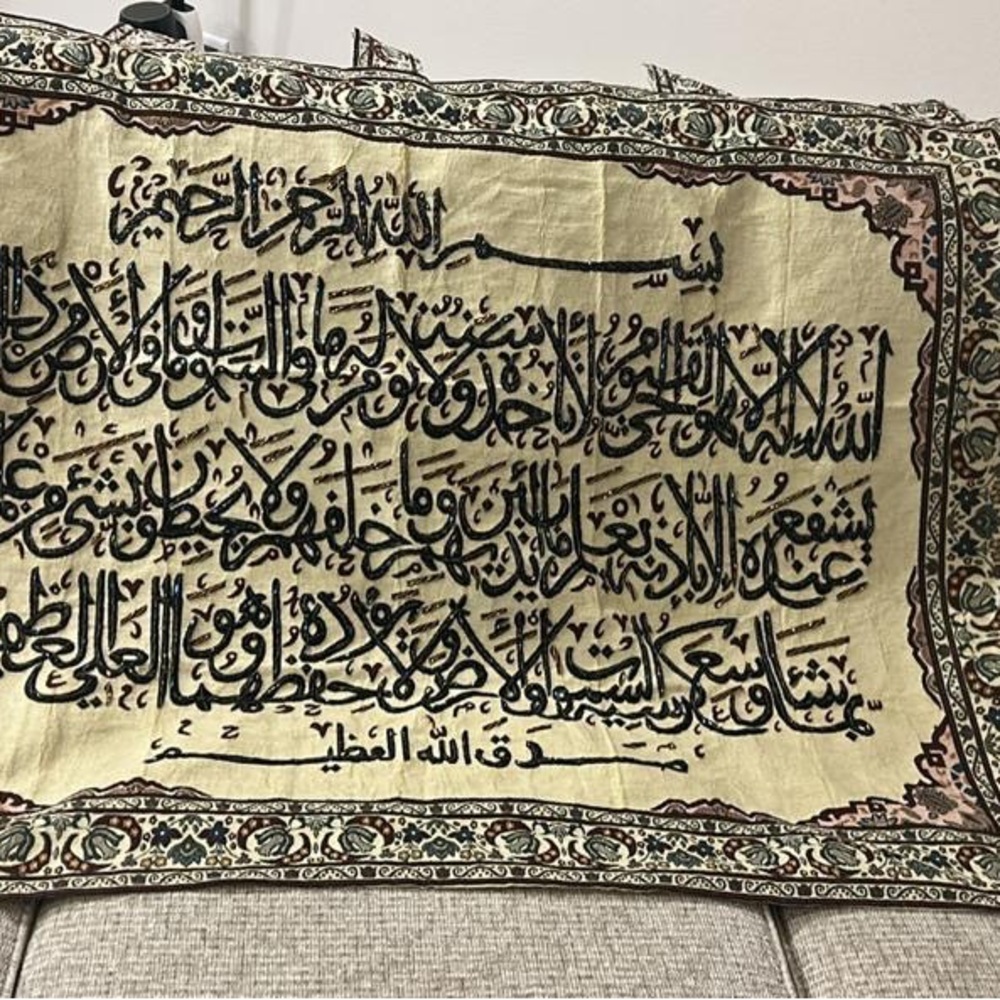 بِسْمِ اللَّهِ الرَّحْمَٰنِ الرَّحِيمِ
اللَّهُ لَا إِلَٰهَ إِلَّا هُوَ الْحَيُّ الْقَيُّومُ لَا تَأْخُذُهُ سِنَةٌ وَلَا نَوْمٌ لَهُ مَا فِي السَّمَاوَاتِ وَمَا فِي الْأَرْضِ
يَشْفَعُ عِنْدَهُ إِلَّا بِإِذْنِهِ يَعْلَمُ مَا بَيْنَ أَيْدِيهِمْ وَمَا خَلْفَهُمْ وَلَا يُحِيطُونَ بِشَيْءٍ مِنْ
بِمَا شَاءَ وَسِعَ كُرْسِيُّهُ السَّمَاوَاتِ وَالْأَرْضَ وَلَا يَئُودُهُ حِفْظُهُمَا وَهُوَ الْعَلِيُّ الْعَظِيمُ
صدق الله العظيم